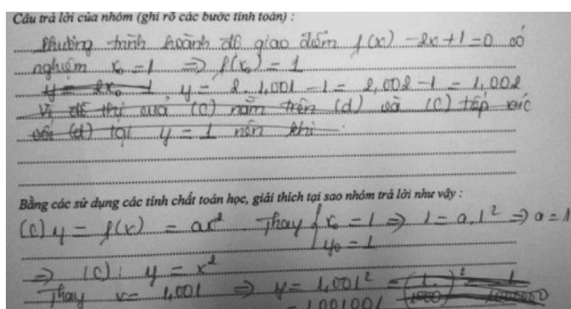 Câu trả lời của nhóm (ghi rõ các bước tính toán) :
Phương trình hoành độ giao điểm f(x) - 2x + 1 = 0 có
nghiệm x₀ = 1 ⇒ f(x₀) = 1
y = 2x₀ - 1 y = 2. 1,001 - 1 = 2,002 - 1 = 1,002
Vì đồ thị của (C) nằm trên (d) và (C) tiếp xúc
với (d) tại y = 1 nên khi
Bằng các sử dụng các tính chất toán học, giải thích tại sao nhóm trả lời như vậy :
(C) y = f(x) = ax² Thay { x₀ = 1 ⇒ 1 = a.1² ⇒ a = 1
y₀ = 1
⇒ (C) : y = x²
Thay x = 1,001 ⇒ y = 1,001² =
= 1,001001